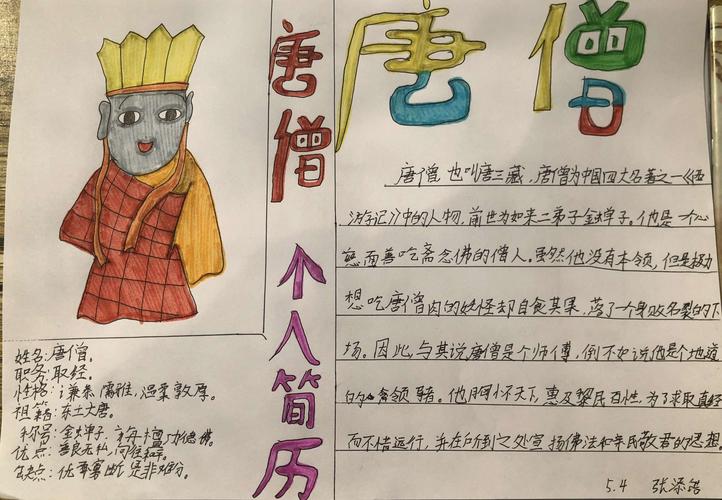 唐僧
个人简历
唐僧
姓名:唐僧。
职务:取经。
性格:谦恭儒雅,温柔敦厚。
祖籍:东土大唐。
称号:金蝉子、旃檀功德佛。
优点:善良无私,向往和平。
缺点:优柔寡断,是非难分。
唐僧,也叫唐三藏,唐僧为中国四大名著之一《西
游记》中的人物,前世为如来二弟子金蝉子。他是一个心
慈面善吃斋念佛的僧人。虽然他没有本领,但是
想吃唐僧肉的妖怪却自食其果,落了一个身败名裂的下
场。因此,与其说唐僧是个师傅,倒不如说他是个地道
的 领 。他胸怀天下,惠及黎民百姓,为了求取真经
而不惜远行,并在所到之处宣扬佛法和 民敬君的思想。
5.4 张添皓